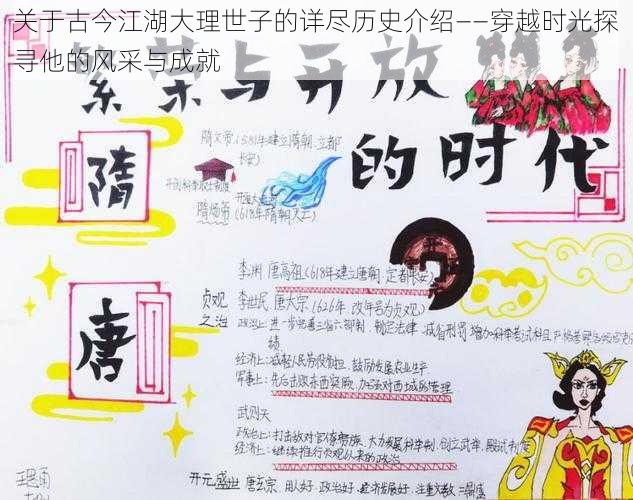 关于古今江湖大理世子的详尽历史介绍——穿越时光探
寻他的风采与成就
繁荣与开放
的时代
隋
隋文帝(581年建立隋朝,立都
长安)
开创科举取士制度
隋炀帝
开通大运河
(618年隋朝灭亡)
唐
贞观
之治
李渊 唐高祖(618年建立唐朝,定都长安)
李世民 唐太宗(626年 改年号为贞观)
政治上:进一步完善三省六部制,制定法律,减省刑罚 增加科举考试科目
绩
经济上:减轻人民劳役负担,鼓励发展农业生产
军事上:先后击败东西突厥,加强对西域的管理
武则天
政治上:打击敌对官僚贵族,大力发展科举制,创立武举、殿试制度
经济上:继续推行贞观以来的政治
开元盛世 唐玄宗,用人好,政治好,经济发展好,注重文教